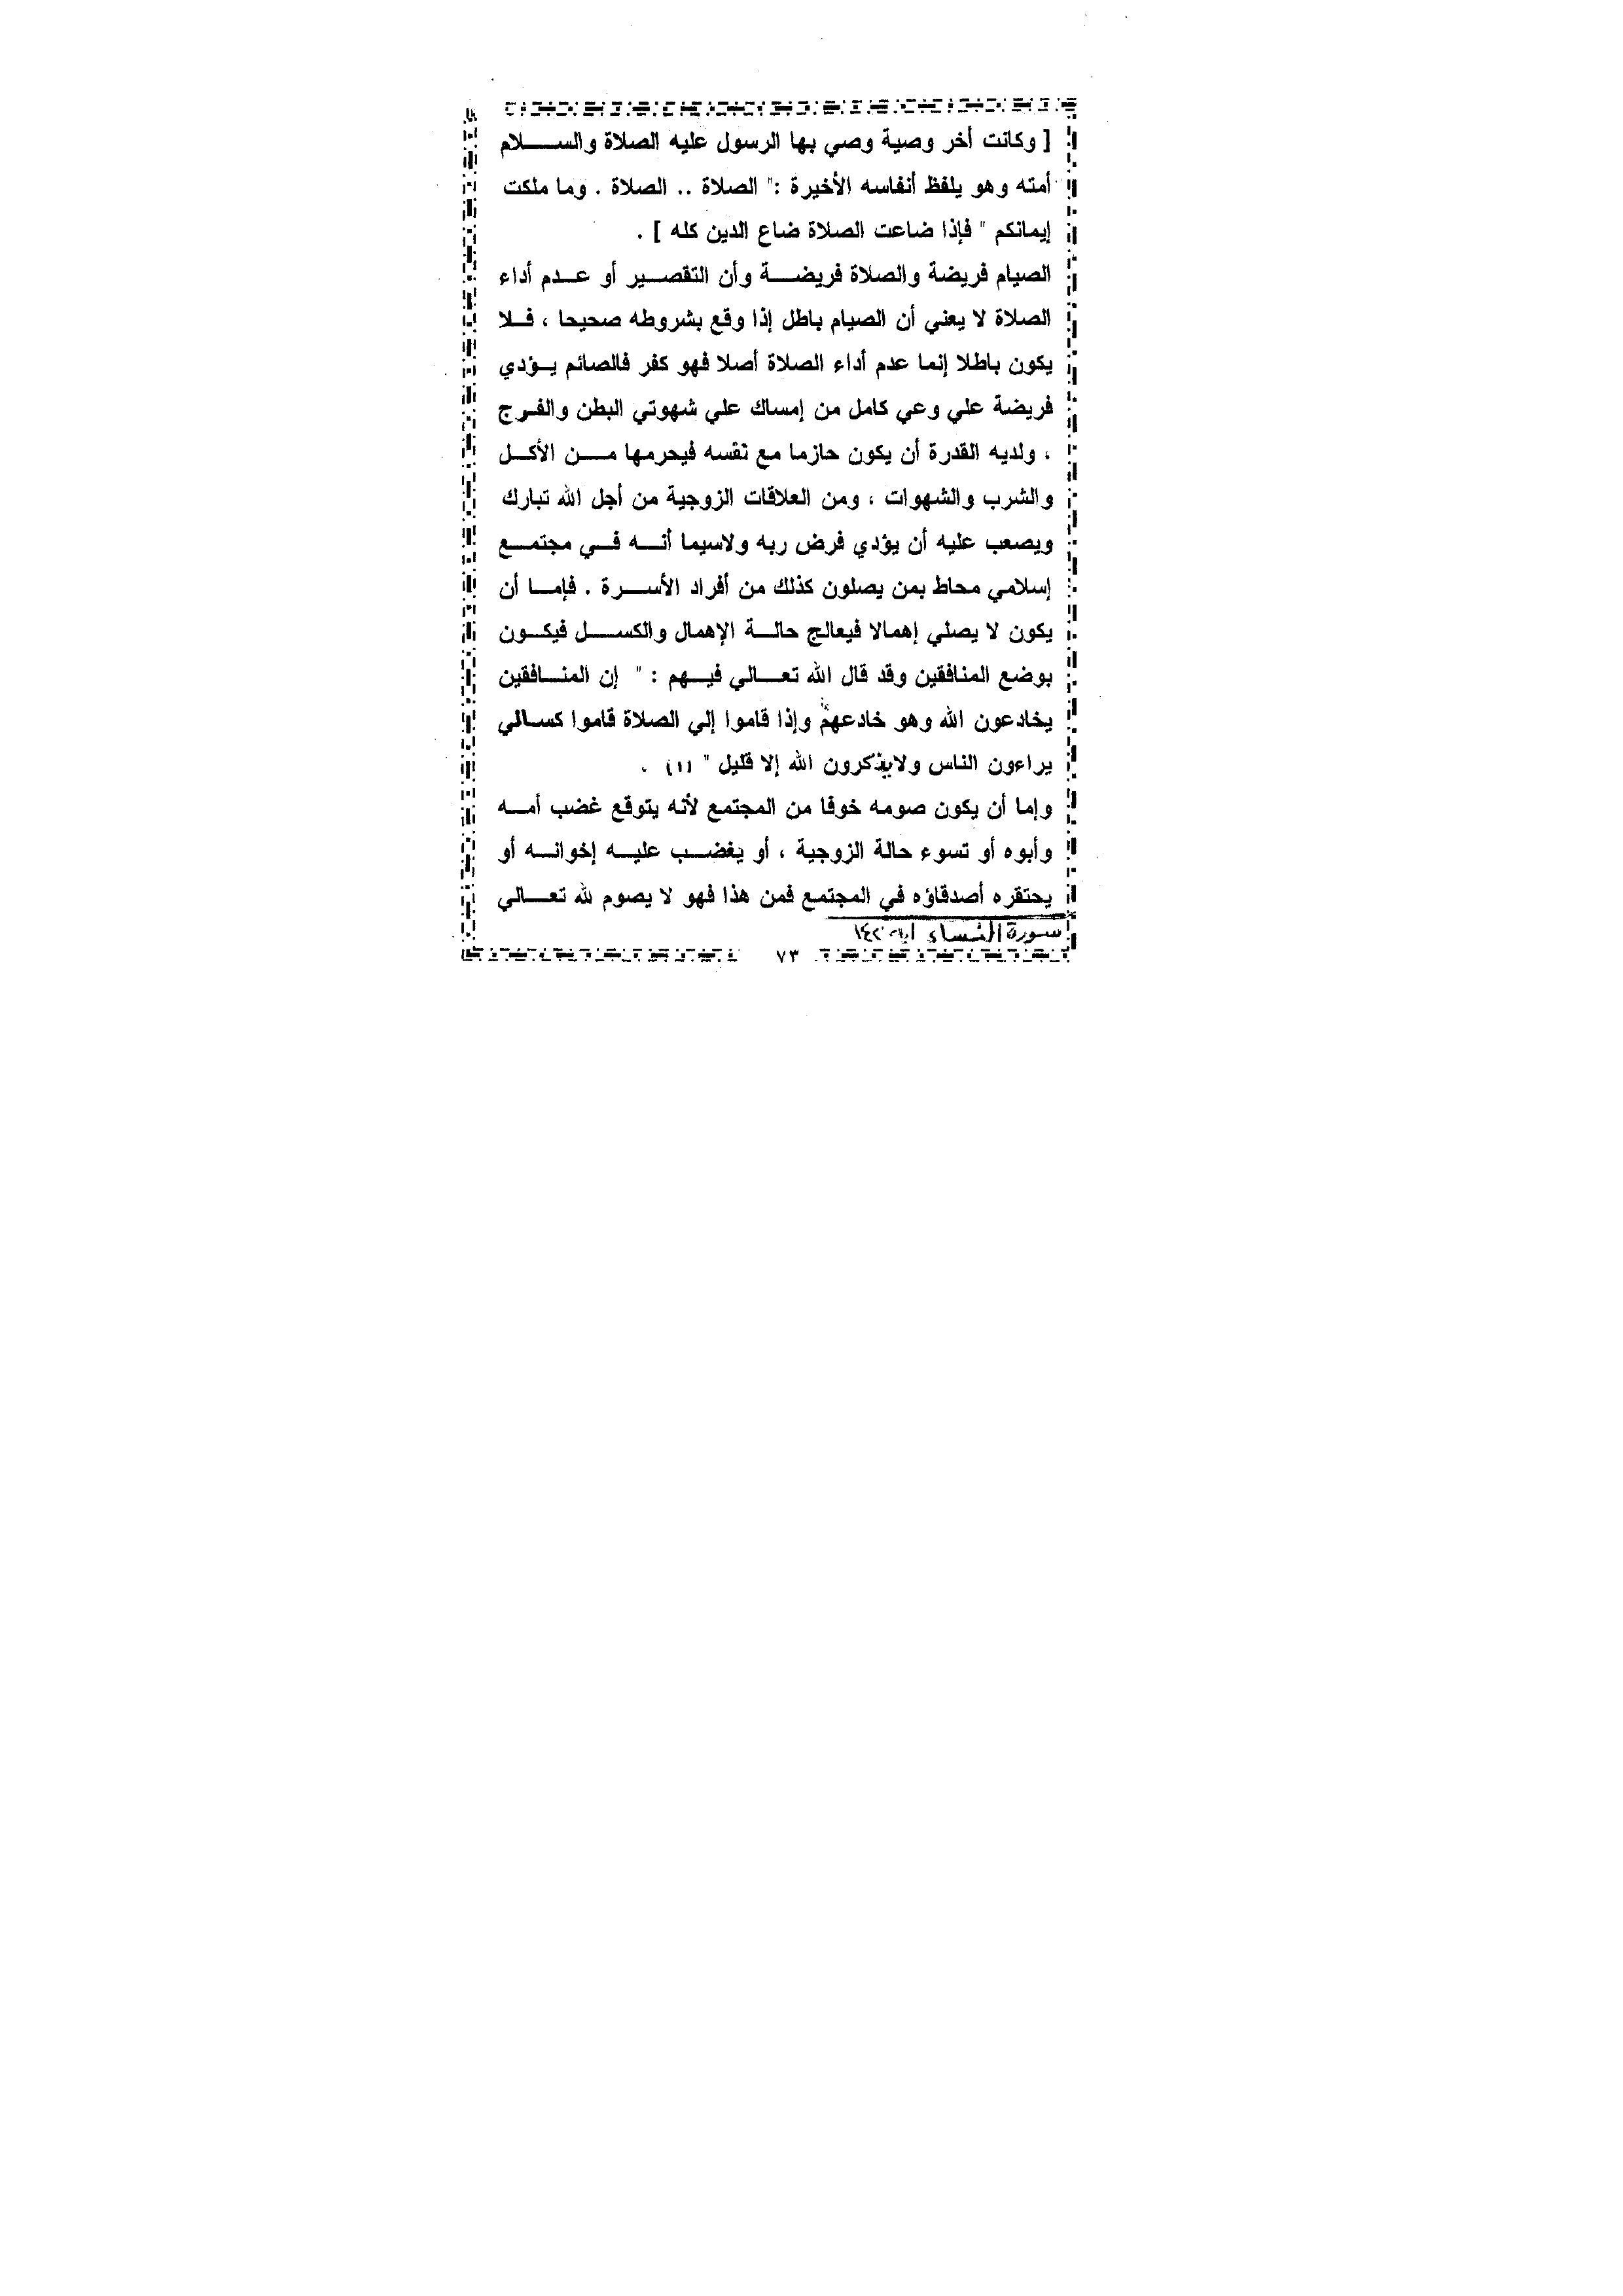 [ وكانت أخر وصية وصي بها الرسول عليه الصلاة والسلام
أمته وهو يلفظ أنفاسه الأخيرة : " الصلاة .. الصلاة . وما ملكت
إيمانكم " فإذا ضاعت الصلاة ضاع الدين كله ] .
الصيام فريضة والصلاة فريضة وأن التقصير أو عدم أداء
الصلاة لا يعني أن الصيام باطل إذا وقع بشروطه صحيحا ، فلا
يكون باطلا إنما عدم أداء الصلاة أصلا فهو كفر فالصائم يؤدي
فريضة علي وعي كامل من إمساك علي شهوتي البطن والفرج
، ولديه القدرة أن يكون حازما مع نفسه فيحرمها من الأكل
والشرب والشهوات ، ومن العلاقات الزوجية من أجل الله تبارك
ويصعب عليه أن يؤدي فرض ربه ولاسيما أنه في مجتمع
إسلامي محاط بمن يصلون كذلك من أفراد الأسرة . فإما أن
يكون لا يصلي إهمالا فيعالج حالة الإهمال والكسل فيكون
بوضع المنافقين وقد قال الله تعالي فيهم : " إن المنافقين
يخادعون الله وهو خادعهم وإذا قاموا إلي الصلاة قاموا كسالي
يراءون الناس ولايذكرون الله إلا قليل " (١) .
وإما أن يكون صومه خوفا من المجتمع لأنه يتوقع غضب أمه
وأبوه أو تسوء حالة الزوجية ، أو يغضب عليه إخوانه أو
يحتقره أصدقاؤه في المجتمع فمن هذا فهو لا يصوم لله تعالي
سورة النساء آية ١٤٢
٧٣